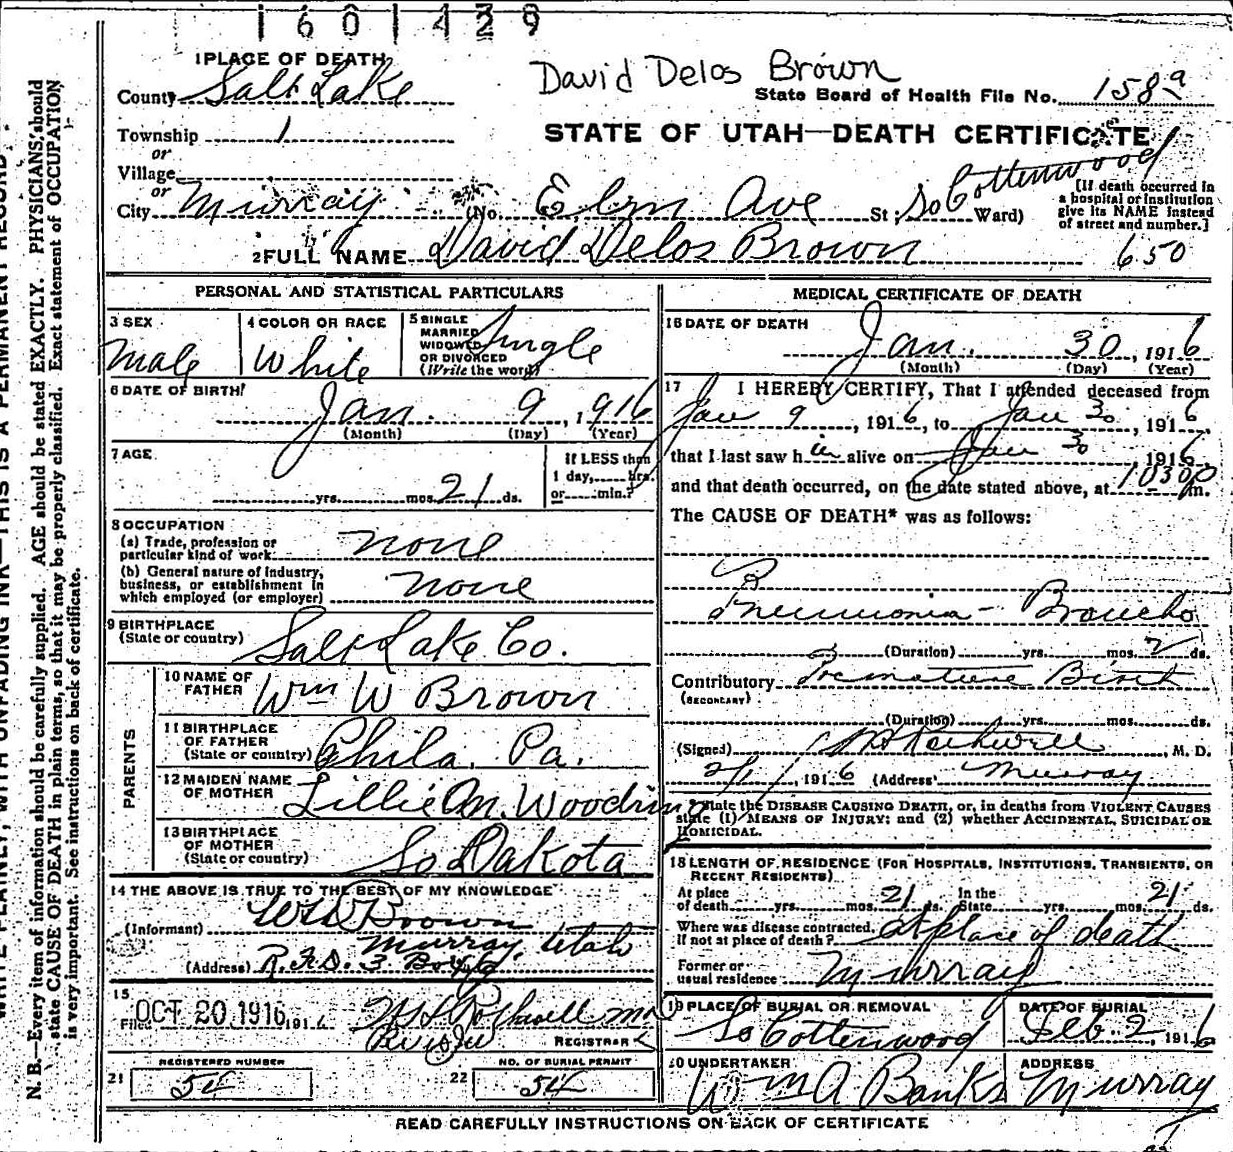 1601429
David Delos Brown
1 PLACE OF DEATH
County Salt Lake
State Board of Health File No. 158a
Township 1
or
STATE OF UTAH—DEATH CERTIFICATE
Village
or
City Murray (No. Elm Ave St; So Cottonwood Ward)
[If death occurred in a hospital or institution give its NAME instead of street and number.]
2 FULL NAME David Delos Brown 650
PERSONAL AND STATISTICAL PARTICULARS
3 SEX
Male
4 COLOR OR RACE
White
5 SINGLE MARRIED WIDOWED OR DIVORCED (Write the word)
Single
6 DATE OF BIRTH
Jan. 9, 1916
(Month) (Day) (Year)
7 AGE
yrs. mos. 21 ds.
If LESS than 1 day, hrs. or min.?
8 OCCUPATION
(a) Trade, profession or particular kind of work none
(b) General nature of Industry, business, or establishment in which employed (or employer) none
9 BIRTHPLACE
(State or country) Salt Lake Co.
PARENTS
10 NAME OF FATHER Wm W Brown
11 BIRTHPLACE OF FATHER (State or country) Phila. Pa.
12 MAIDEN NAME OF MOTHER Lillie M. Woodring
13 BIRTHPLACE OF MOTHER (State or country) So Dakota
14 THE ABOVE IS TRUE TO THE BEST OF MY KNOWLEDGE
(Informant) Wm W Brown
Murray Utah
(Address) R.F.D. 3 Box
15
Filed OCT 20 1916 191
M L Rothwell MD
REGISTRAR
REGISTERED NUMBER
21 54
NO. OF BURIAL PERMIT
22 54
MEDICAL CERTIFICATE OF DEATH
16 DATE OF DEATH
Jan. 30, 1916
(Month) (Day) (Year)
17 I HEREBY CERTIFY, That I attended deceased from
Jan 9, 1916, to Jan 30, 1916
that I last saw h im alive on Jan 30 1916,
and that death occurred, on the date stated above, at 1030 P m.
The CAUSE OF DEATH* was as follows:
Pneumonia - Broncho
(Duration) yrs. mos. 2 ds.
Contributory Premature Birth
(SECONDARY)
(Duration) yrs. mos. ds.
(Signed) Rothwell, M. D.
2/1, 1916 (Address) Murray
*State the DISEASE CAUSING DEATH, or, in deaths from VIOLENT CAUSES
state (1) MEANS OF INJURY; and (2) whether ACCIDENTAL, SUICIDAL OR
HOMICIDAL.
18 LENGTH OF RESIDENCE (FOR HOSPITALS, INSTITUTIONS, TRANSIENTS, OR
RECENT RESIDENTS)
At place of death yrs. mos. 21 ds. In the State yrs. mos. 21 ds.
Where was disease contracted, if not at place of death? at place of death
Former or usual residence Murray
19 PLACE OF BURIAL OR REMOVAL
So Cottonwood
DATE OF BURIAL
Feb 2, 1916
20 UNDERTAKER
Wm A Banks
ADDRESS
Murray
READ CAREFULLY INSTRUCTIONS ON BACK OF CERTIFICATE
WRITE PLAINLY, WITH UNFADING INK—THIS IS A PERMANENT RECORD
N. B.—Every item of information should be carefully supplied. AGE should be stated EXACTLY. PHYSICIANS should
state CAUSE OF DEATH in plain terms, so that it may be properly classified. Exact statement of OCCUPATION
is very important. See instructions on back of certificate.